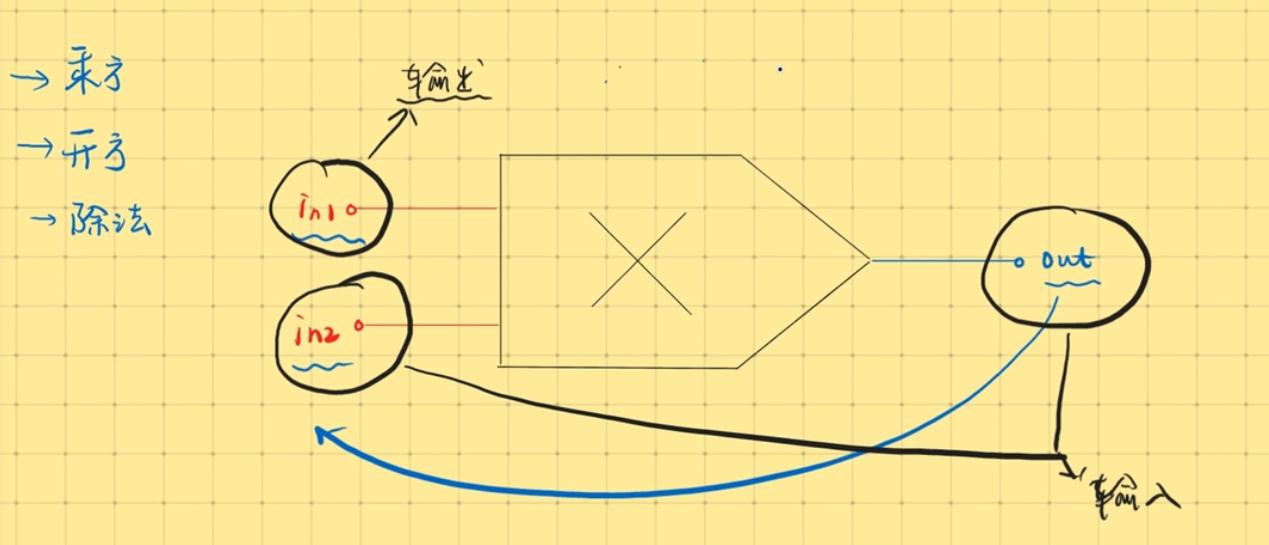 → 乘方
→ 开方
→ 除法
输出
in1
in2
out
输入